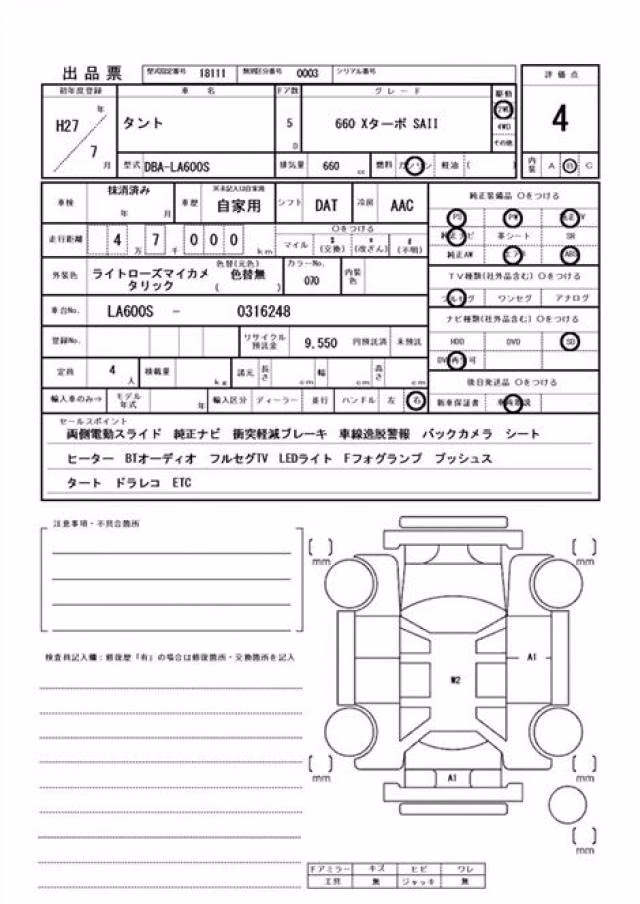 出品票 型式指定番号 18111 類別区分番号 0003 シリアル番号
初年度登録 車名 ドア数 グレード 駆動 評価点
H27 年 7 月 タント 5 D 660 Xターボ SAII 2WD 4WD その他 4
型式 DBA-LA600S 排気量 660 cc 燃料 ガソリン 軽油 ( ) 内装 A B C
車検 抹消済み 年 月 車歴 ※未記入は自家用 自家用 シフト DAT 冷房 AAC
純正装備品 〇をつける
PS PW 純正TV
走行距離 4 万 7 千 0 0 0 km 〇をつける
マイル $ (交換) * (改ざん) # (不明)
純正ナビ 革シート SR
純正AW エアB ABS
外装色 ライトローズマイカメタリック 色替(元色) 色替無 ( ) カラーNo. 070 内装色
TV種類(社外品含む) 〇をつける
フルセグ ワンセグ アナログ
車台No. LA600S - 0316248
ナビ種類(社外品含む) 〇をつける
登録No. リサイクル預託金 9,550 円預託済 未預託
HDD DVD SD
DVD再生可
定員 4 人 積載量 kg 諸元 長さ cm 幅 cm 高さ cm
後日発送品 〇をつける
輸入車のみ⇒ モデル年式 年 輸入区分 ディーラー 並行 ハンドル 左 右
新車保証書 車両取説
セールスポイント
両側電動スライド 純正ナビ 衝突軽減ブレーキ 車線逸脱警報 バックカメラ シート
ヒーター BTオーディオ フルセグTV LEDライト Fフォグランプ プッシュス
タート ドラレコ ETC
注意事項・不具合箇所
検査員記入欄:修復歴「有」の場合は修復箇所・交換箇所を記入
mm mm
A1
W2
mm mm
A1
mm
ドアミラー キズ ヒビ ワレ
工具 無 ジャッキ 無